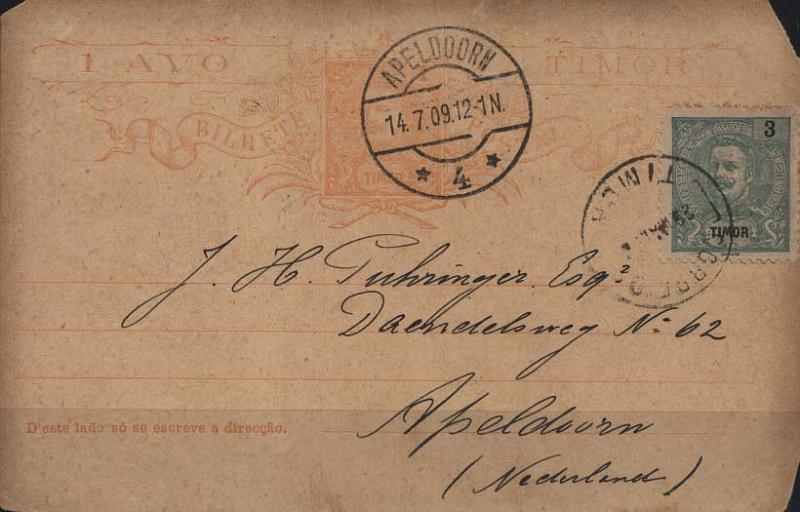 1 AVO
TIMOR
BILHETE
APELDOORN
14.7.09.12-1N.
4
3
TIMOR
TIMOR
CORREIO
J. H. Puhringer Esqr
Daendelsweg No: 62
Apeldoorn
(Nederland)
D'este lado só se escreve a direcção.